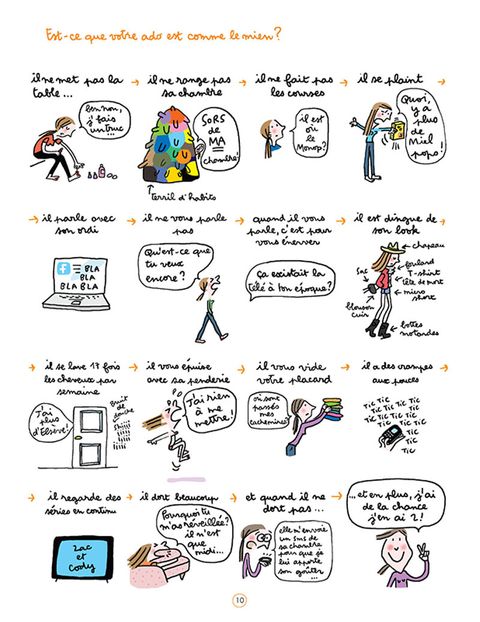 Est-ce que votre ado est comme le mien?
il ne met pas la
table...
ben non,
j'fais
un truc...
→ il ne range pas
sa chambre
SORS
de
MA
chambre!
terril d'habits
→ il ne fait pas
les courses
il est
où
le
Monop?
→ il se plaint
Quoi,
y a
plus
de
Miel
pops!
→ il parle avec
son ordi
f = BLA
BLA
BLA BLA
→ il ne vous parle
pas
Qu'est-ce que
tu veux
encore?
→ quand il vous
parle, c'est pour
vous énerver
Ça existait la
télé à ton époque?
→ il est dingue de
son look
chapeau
foulard
T-shirt
tête de mort
micro
short
sac
blouson
cuir
bottes
motardes
→ il se lave 17 fois
les cheveux par
semaine
J'ai
plus
d'Elsève!
bruit de
douche
→ il vous épuise
avec sa penderie
J'ai rien
à me
mettre!
→ il vous vide
votre placard
où sont
passés
mes
cachemires?
→ il a des crampes
aux pouces
TIC TIC TIC
TIC TIC TIC
TIC TIC
TIC
TIC
→ il regarde des
séries en continu
Zac
et
Cody
→ il dort beaucoup
Pourquoi tu
m'as réveillée?
il n'est
que
midi...
→ et quand il ne
dort pas...
elle m'envoie
un sms de
sa chambre
pour que je
lui apporte
son goûter...
→ ...et en plus, j'ai
de la chance
j'en ai 2!
10